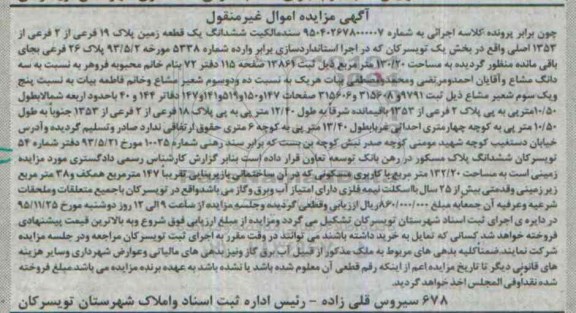 آگهی مزایده اموال غیرمنقول
چون برابر پرونده کلاسه اجرائی به شماره ۹۵۰۴۰۲۶۷۸۰۰۰۰۰۷ سندمالکیت ششدانگ یک قطعه زمین پلاک ۱۹ فرعی از ۲ فرعی از
۱۳۵۳ اصلی واقع در بخش یک تویسرکان که در اجرا استانداردسازی برابر وارده شماره ۵۳۳۸ مورخه ۹۳/۵/۲ پلاک ۲۶ فرعی بجای
باقی مانده منظور گردیده به مساحت ۱۳۰/۲۰ مترمربع ذیل ثبت ۱۳۸۶۹ صفحه ۱۱۵ دفتر ۷۲ بنام خانم محبوبه فروهر به نسبت سه
دانگ مشاع و آقایان احمدومرتضی ومحمدمصطفی بیات هریک به نسبت ده ودوسوم شعیر مشاع وخانم فاطمه بیات به نسبت پنج
ویک سوم شعیر مشاع ذیل ثبت ۹۷۹۱و ۳۱۵۶۰۸و ۳۱۵۶۰۶ صفحات ۱۴۷و۱۵۰و۵۱۹و۱۴۱و۱۴۷ دفاتر ۱۴۴ و ۴۰ باحدود اربعه شمالابطول
۱۰/۵۰متر پی به پی پلاک ۲ فرعی از ۱۳۵۳ باقیمانده شرقا به طول ۱۲/۴۰ متر پی به پی پلاک ۱۸ فرعی از ۲ فرعی از ۱۳۵۳ جنوبا به طول
۱۰/۵۰ متر پی به کوچه چهارمتری احداثی غربابطول ۱۳/۴۰ متر پی به کوچه ۶ متری حقوق ارتفاقی ندارد صادر وتسلیم گردیده وآدرس
خیابان دستغیب کوچه شهید مومنی کوچه صدر نبش کوچه بن بست که برابر سند رهنی شماره ۱۰۰۲۵ مورخ ۹۳/۵/۲۱ دفتر شماره ۵۴
تویسرکان ششدانگ پلاک مسکور در رهن بانک توسعه تعاون قرار داده است بنابر گزارش کارشناس رسمی دادگستری مورد مزایده
زمینی است به مساحت ۱۳۲/۲۰ متر مربع با کاربری مسکونی که در آن ساختمانی با زیربنایی تقریبا ۱۴۷ مترمربع همکف و۳۸ متر مربع
زیر زمینی وقدمتی بیش از ۲۵ سال بااسکلت نیمه فلزی دارای امتیاز آب وبرق وگاز می باشدواقع در تویسرکان باجمیع متعلقات وملحقات
شرعیه وعرفیه آن جمعابه مبلغ ۸۶۰/۰۰۰/۰۰۰ریال ارزیابی وقطعی گردیده وجلسه مزایده از ساعت ۹ الی ۱۲ روز دوشنبه مورخ ۹۵/۱۱/۲۵
در دایره ی اجرای ثبت اسناد شهرستان تویسرکان تشکیل می گردد ومزایده از مبلغ ارزیابی فوق شروع وبه بالاترین قیمت پیشنهادی
فروخته خواهد شد کسانی که تمایل به خرید داشته باشند می توانند در وقت مقرر به اجرای ثبت تویسرکان مراجعه ودر جلسه مزایده
شرکت نمایند.ضمناکلیه بدهی های مربوط به ملک مذکور از قبیل آب برق گاز ونیز بدهی های مالیاتی وعوارض شهرداری وسایر هزینه
های قانونی دیگر تا تاریخ مزایده اعم از اینکه رقم قطعی آن معلوم شده باشد یا نشده باشد به عهده برنده مزایده می باشد.مبلغ فروخته
شده نقداوفی المجلس اخذ خواهد گردید.
۶۷۸ سیروس قلی زاده - رئیس اداره ثبت اسناد واملاک شهرستان تویسرکان